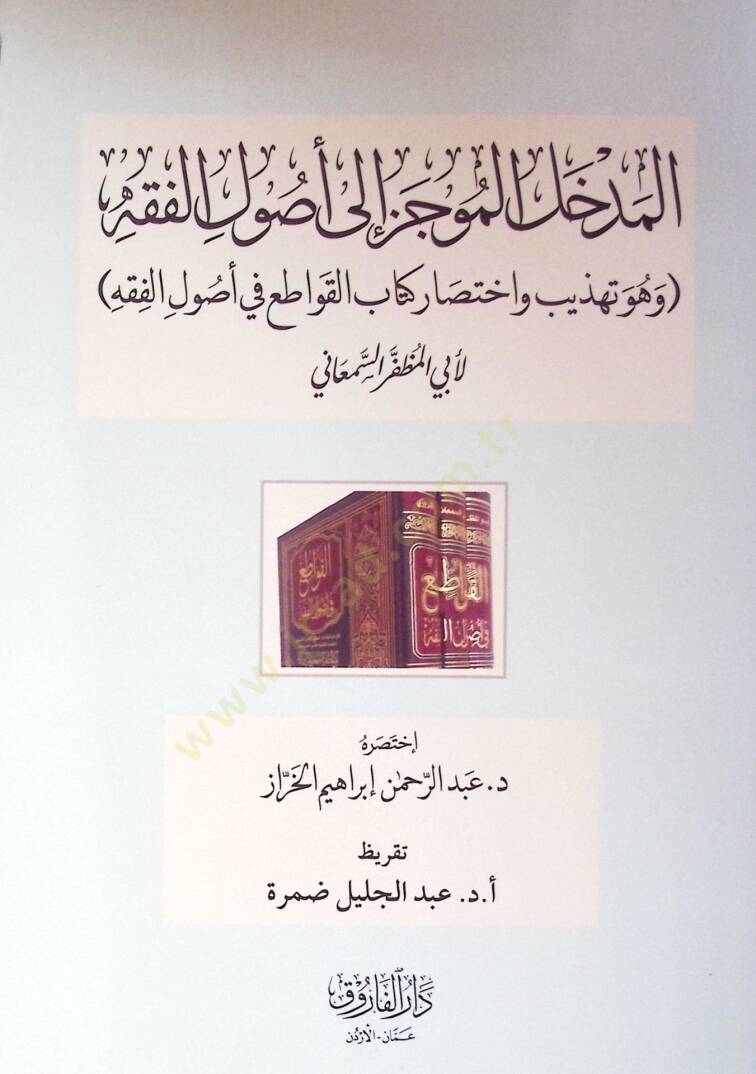 المَدْخَل المُوجَز إلى أصُولِ الفقهِ
(وَهُوَ تهذيب واختصَار كتاب القَواطع في أصُولِ الفِقهِ)
لأبي المُظفَّر السَّمعَاني
القواطع
القواطع
في أصول الفقه
إختَصَرهُ
د. عَبد الرَّحمٰن إبراهيم الخَرَّاز
تقريظ
أ.د. عبد الجليل ضمرة
دَارُ الفَارُوق
عَمَّان - الأردُن